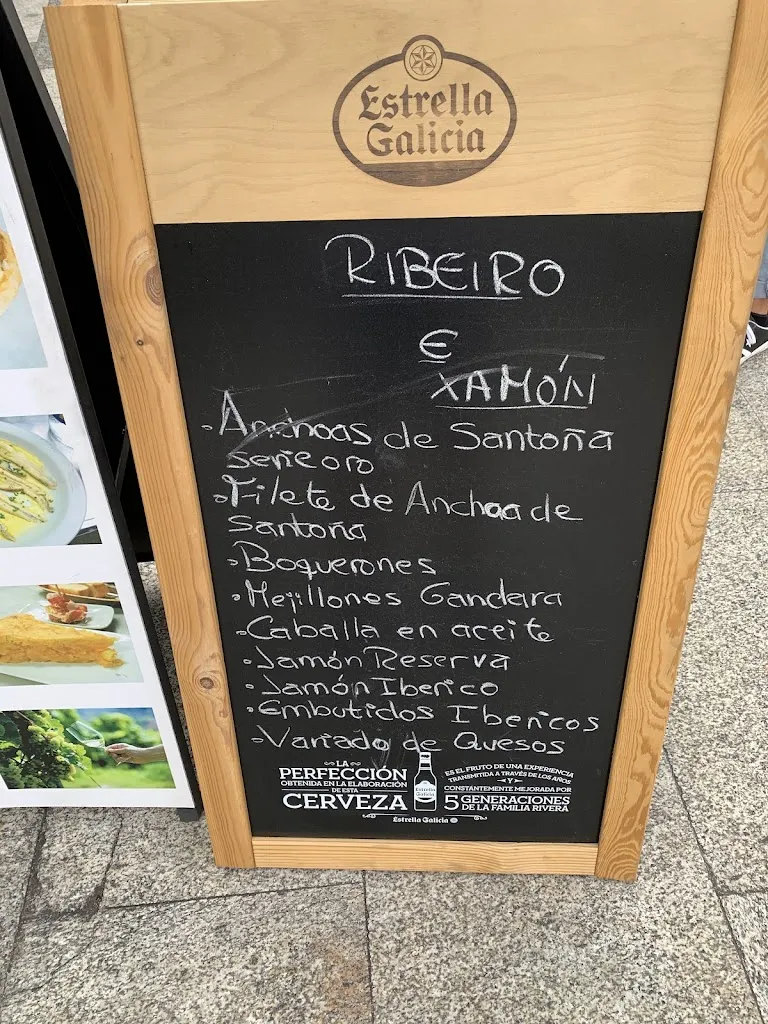 Estrella
Galicia
RIBEIRO
E
XAMÓN
Anchoas de Santoña
serie oro
Filete de Anchoa de
Santoña
Boquerones
Mejillones Gandara
Caballa en aceite
Jamón Reserva
Jamón Iberico
Embutidos Ibericos
Variado de Quesos
LA
PERFECCIÓN
OBTENIDA EN LA ELABORACIÓN
DE ESTA
CERVEZA
ES EL FRUTO DE UNA EXPERIENCIA
TRANSMITIDA A TRAVÉS DE LOS AÑOS
Y
CONSTANTEMENTE MEJORADA POR
5 GENERACIONES
DE LA FAMILIA RIVERA
Estrella Galicia